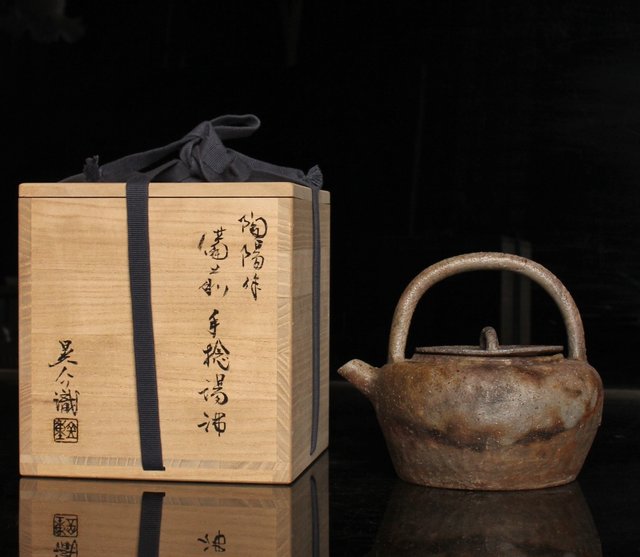 陶陽作
備前 手捻湯沸
晃介識